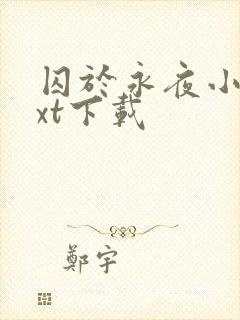 囚於永夜小
xt下載
鄭宇